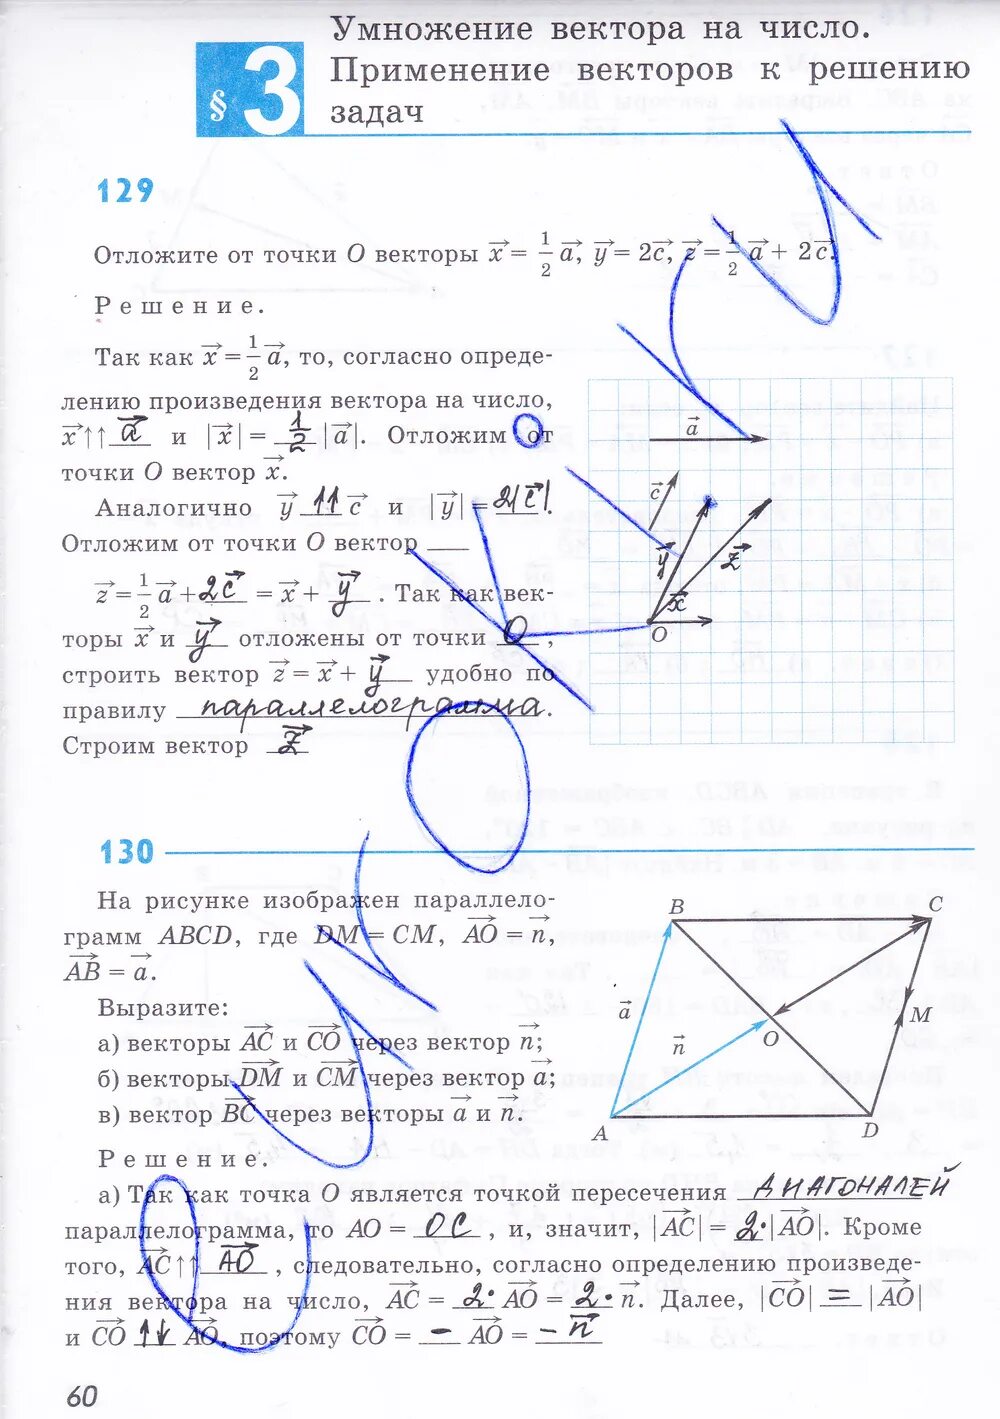 § 3
Умножение вектора на число.
Применение векторов к решению
задач
129
Отложите от точки O векторы x = 1/2 a, y = 2c, z = 1/2 a + 2c.
Решение.
Так как x = 1/2 a, то, согласно опреде-
лению произведения вектора на число,
x↑↑ a и |x| = 1/2 |a|. Отложим от
точки O вектор x.
Аналогично y ↑↑ c и |y| = 2|c|.
Отложим от точки O вектор ___
z = 1/2 a + 2c = x + y. Так как век-
торы x и y отложены от точки O,
строить вектор z = x + y удобно по
правилу параллелограмма.
Строим вектор z
a
c
y
z
x
O
130
На рисунке изображен параллело-
грамм ABCD, где DM = CM, AO = n,
AB = a.
Выразите:
а) векторы AC и CO через вектор n;
б) векторы DM и CM через вектор a;
в) вектор BC через векторы a и n.
B
C
a
n
O
M
A
D
Решение.
а) Так как точка O является точкой пересечения ДИАГОНАЛЕЙ
параллелограмма, то AO = OC, и, значит, |AC| = 2·|AO|. Кроме
того, AC↑↑ AO, следовательно, согласно определению произведе-
ния вектора на число, AC = 2· AO = 2· n. Далее, |CO| = |AO|
и CO ↑↓ AO, поэтому CO = - AO = - n
60